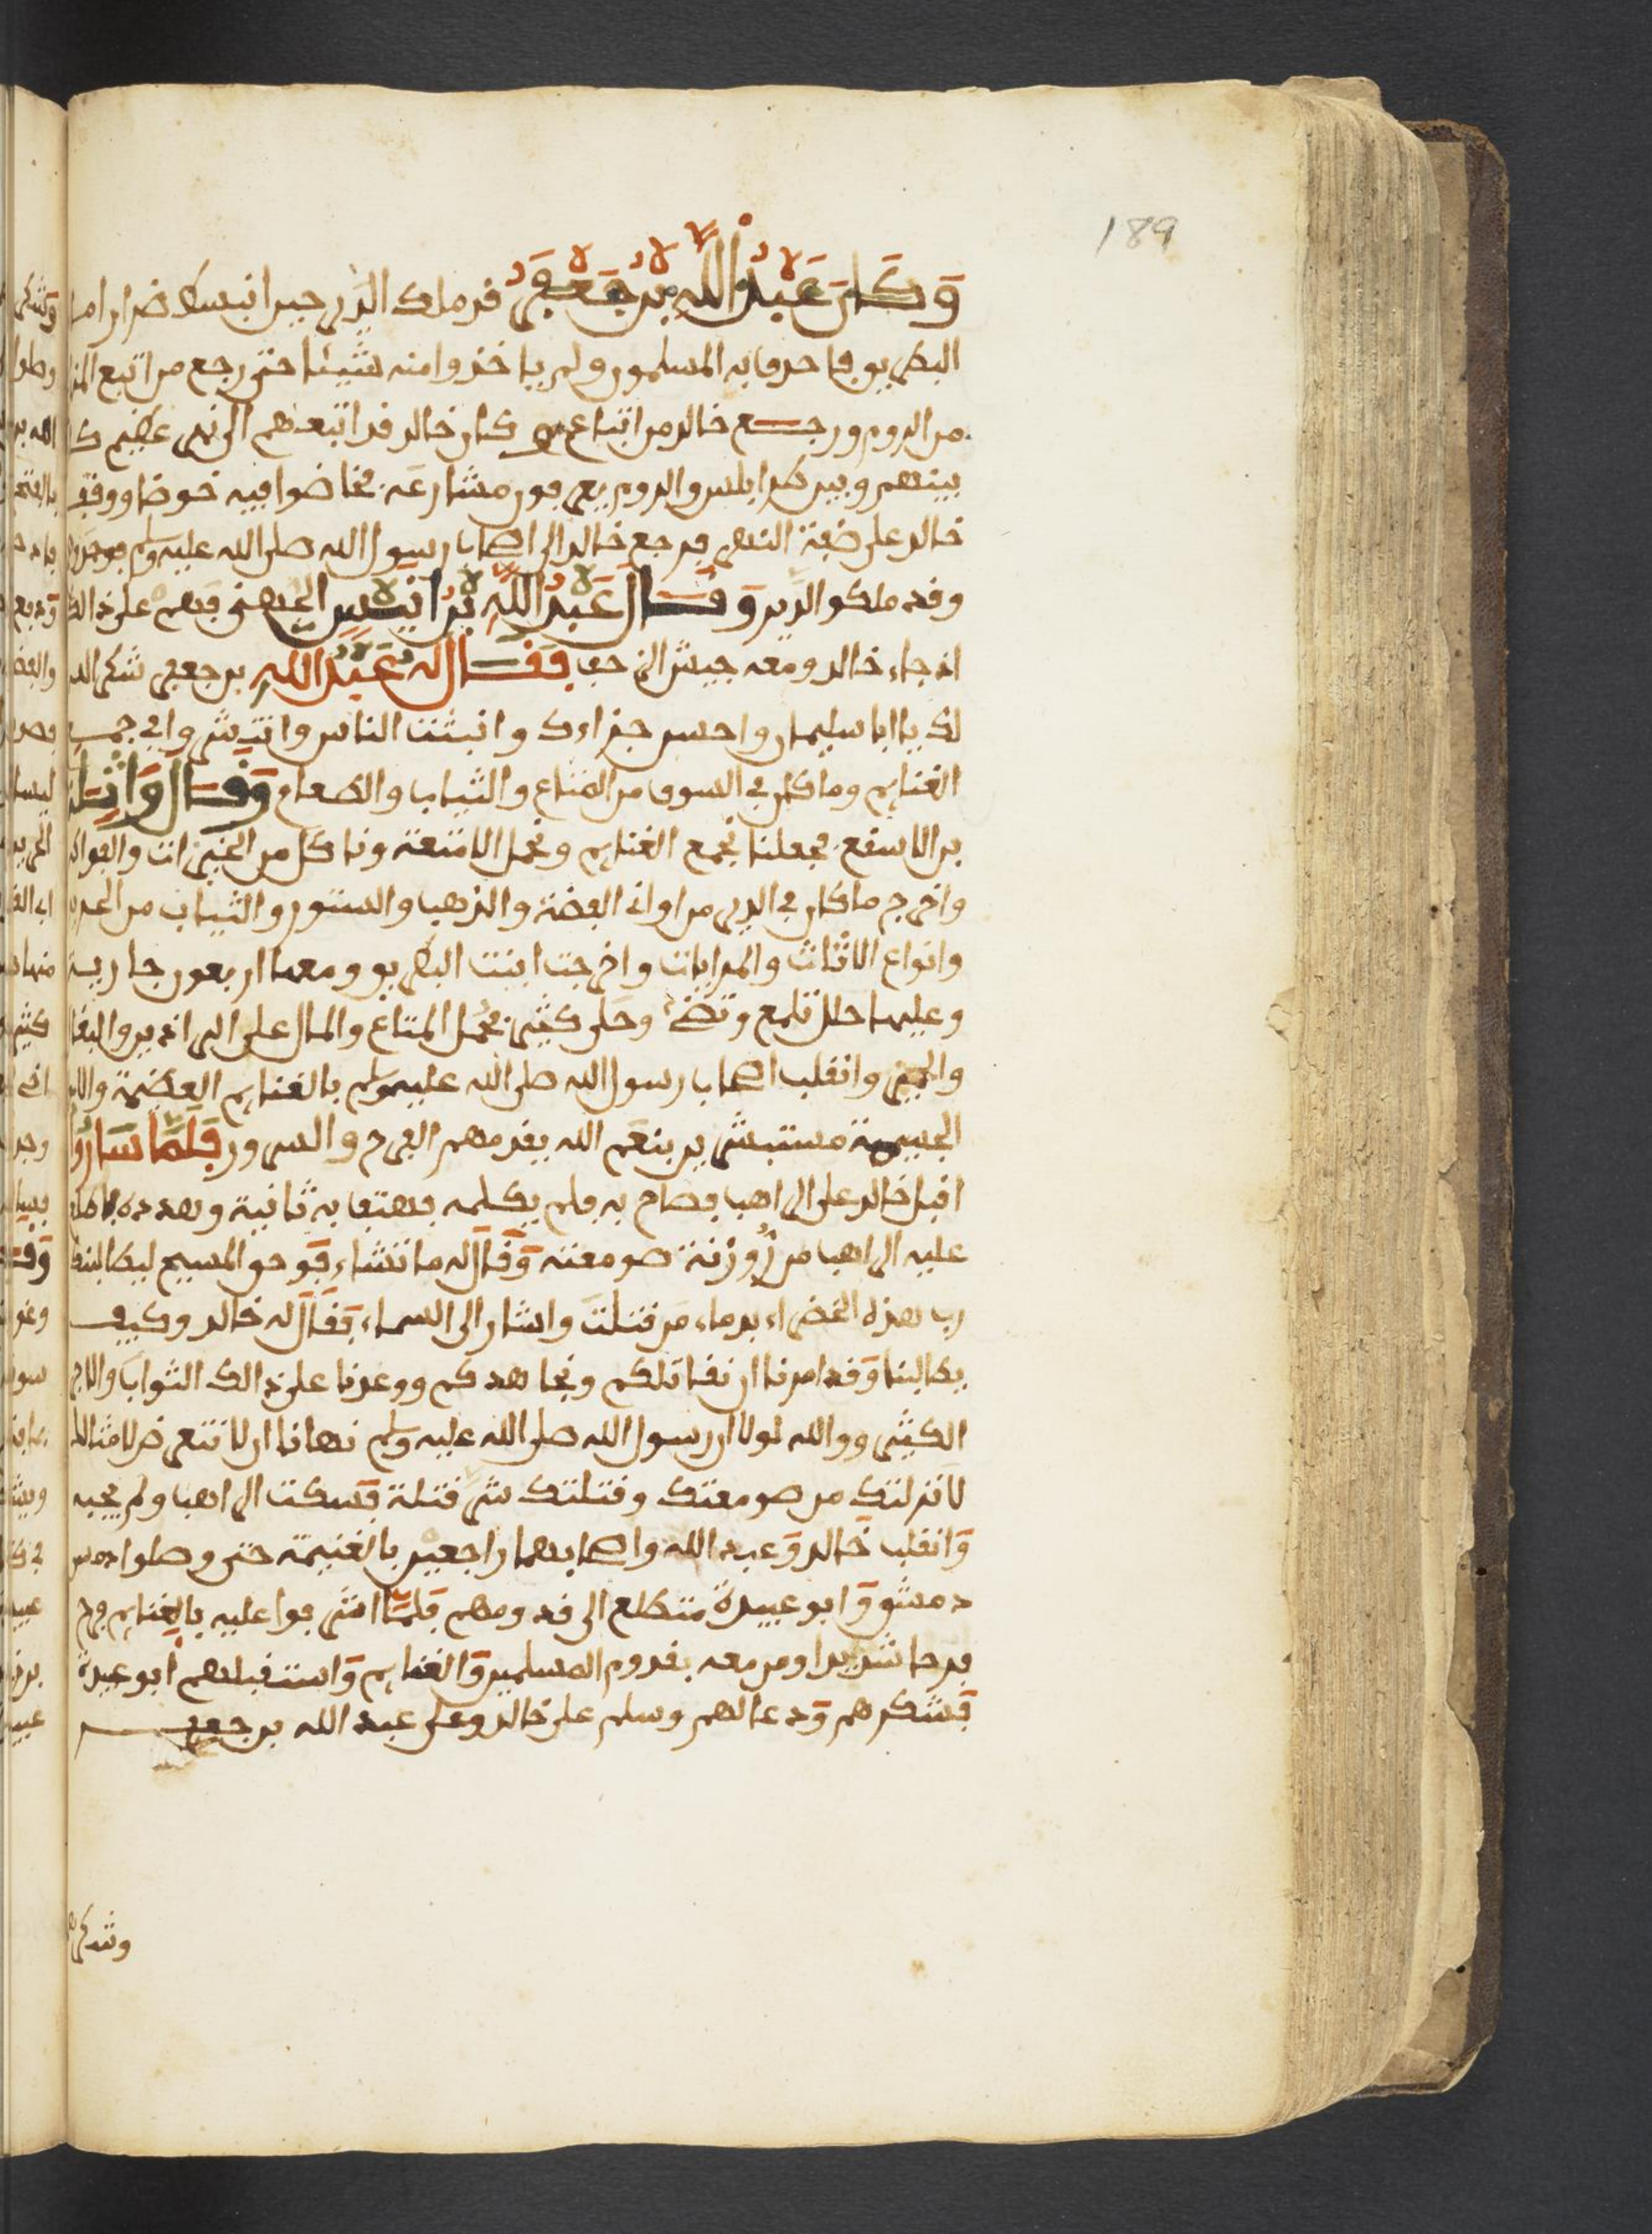 189
وَكَانَ عَبْدُ اللَّهِ بْنُ جَعْفَرٍ قد ملك الدير حين انبسط ضرار اما
البطريق فاحدق به المسلمون ولم ياخذوا منه شيئا حتى رجع من اتبع
من الروم ورجع خالد من اتباعهم وكان خالد قد اتبعهم الى نهر عظيم
بينهم وبين طرابلس والروم يعرفون مشارعه فخاضوا فيه خوضا ووقف
خالد على ضفة النهر فرجع خالد الى اصحاب رسول الله صلى الله عليه وسلم فوجدو
وقد ملكو الدير وَقَالَ عَبْدُ اللَّهِ بْنُ انَيْسٍ الجهني فبهم على ذالك
اذ جاء خالد ومعه جيش الزحف فَقَالَ لَهُ عَبْدُ اللهِ بن جعفر شكر الله
لك يا ابا سليمان واحسن جزاءك وانبثت الناس وانتشروا في جمع
الغنايم وما كان في السوق من المتاع والثياب والطعام وَقَالَ وَاثِلة
بن الاسقع فجعلنا نجمع الغنايم ونحمل الامتعة وناكل من الخيرات والفواكه
واخرج ما كان في الدير من اوانى الفضة والذهب والستور والثياب من الحرير
وانواع الاثاث والمرايات واخرجت ابنت البطريق ومعها اربعون جارية
وعليها حلل تلمع وتضئ وحلى كثير فحمل المتاع والمال على البراذين والبغال
والحمير وانقلب اصحاب رسول الله صلى الله عليه وسلم بالغنايم العظيمة
الجسيمة مستبشرين بنعم الله يقدمهم الفرح والسرور فَلَمَّا سَارُوا
اقبل خالد على الراهب فصاح به فلم يكلمه فهتف به ثانية وهدده فاطلع
عليه الراهب من رُوزنة صومعته وَقَال له ما تشاء فَوحو المسيح ليطالبنك
رب هذه الخضراء بدماء من قتلتَ واشار الى السماء فقال له خالد وكيف
يطالبنا وَقد امرنا ان نقاتلكم ونجاهدكم ووعدنا على ذالك الثواب والاجر
الكثير ووالله لولا ان رسول الله صلى الله عليه وسلم نهانا ان لا نتعرض لامثالك
لانزلتك من صومعتك وقتلتك شر قتلة فسكت الراهب ولم يجبه
وَانقلب خالد وَعبد الله واصحابهما راجعين بالغنيمة حتى وصلوا
دمشق وَابو عبيدة متطلع الى قدومهم فَلَمَّا اشرفوا عليه بالغنايم فرح
فرحا شديدا ومن معه بقدوم المسلمين وَالغنايم وَاستقبلهم ابو عبيدة
فَشكرهم وَدعا لهم وسلم على خالد وعلى عبد الله بن جعفر
وشكر